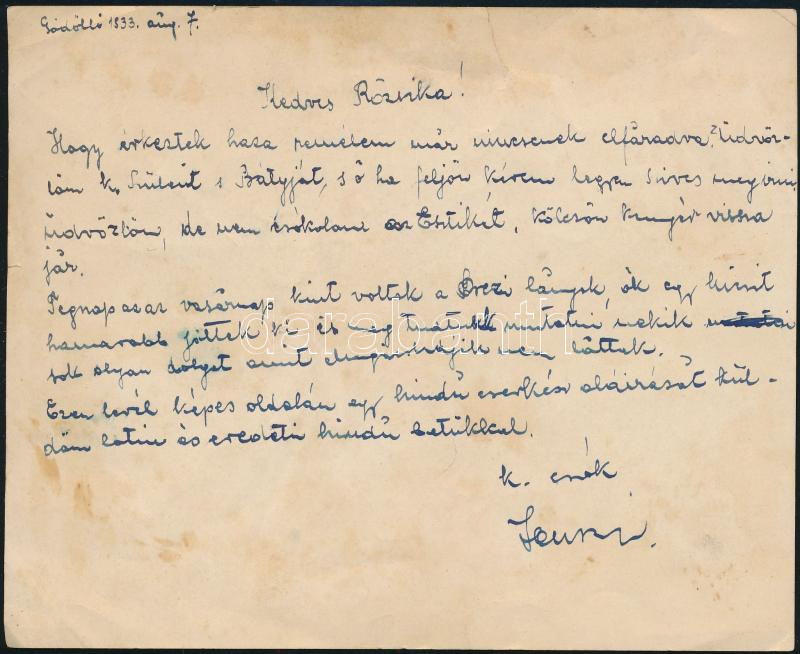 Gödöllő 1933. aug. 7.
Kedves Rózsika!
Hogy érkeztek haza remélem már nincsenek elfáradva? Üdvöz-
löm k. Szüleit s Bátyját, s ő ha feljön kérem legyen szives megirni,
üdvözlöm, de nem csókolom az Esztikét, kölcsön kenyér vissza
jár.
Tegnap azaz vasárnap kint voltak a lányok, ők egy kicsit
hamarabb jöttek ki és meg tudtuk mutatni nekik
sok olyan dolgot amit nem láttak.
Ezen levél képes oldalán egy hindu cserkész aláirását kül-
döm latin és eredeti hindu betükkel.
k. csók
darabanth